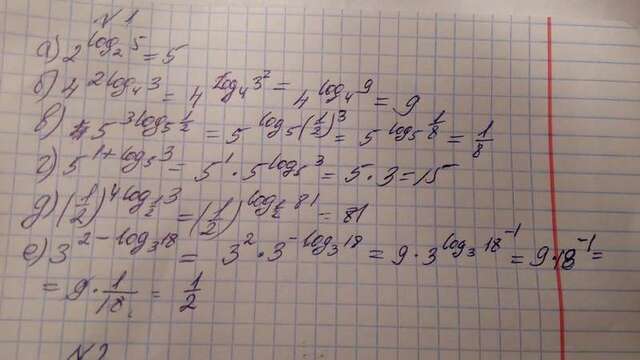 № 1
а) 2^{log_2 5} = 5
б) 4^{2 log_4 3} = 4^{log_4 3^2} = 4^{log_4 9} = 9
в) 5^{3 log_5 \frac{1}{2}} = 5^{log_5 (\frac{1}{2})^3} = 5^{log_5 \frac{1}{8}} = \frac{1}{8}
г) 5^{1 + log_5 3} = 5^1 · 5^{log_5 3} = 5 · 3 = 15
д) (\frac{1}{2})^{4 log_{\frac{1}{2}} 3} = (\frac{1}{2})^{log_{\frac{1}{2}} 81} = 81
е) 3^{2 - log_3 18} = 3^2 · 3^{-log_3 18} = 9 · 3^{log_3 18^{-1}} = 9 · 18^{-1} =
= 9 · \frac{1}{18} = \frac{1}{2}
№ 2